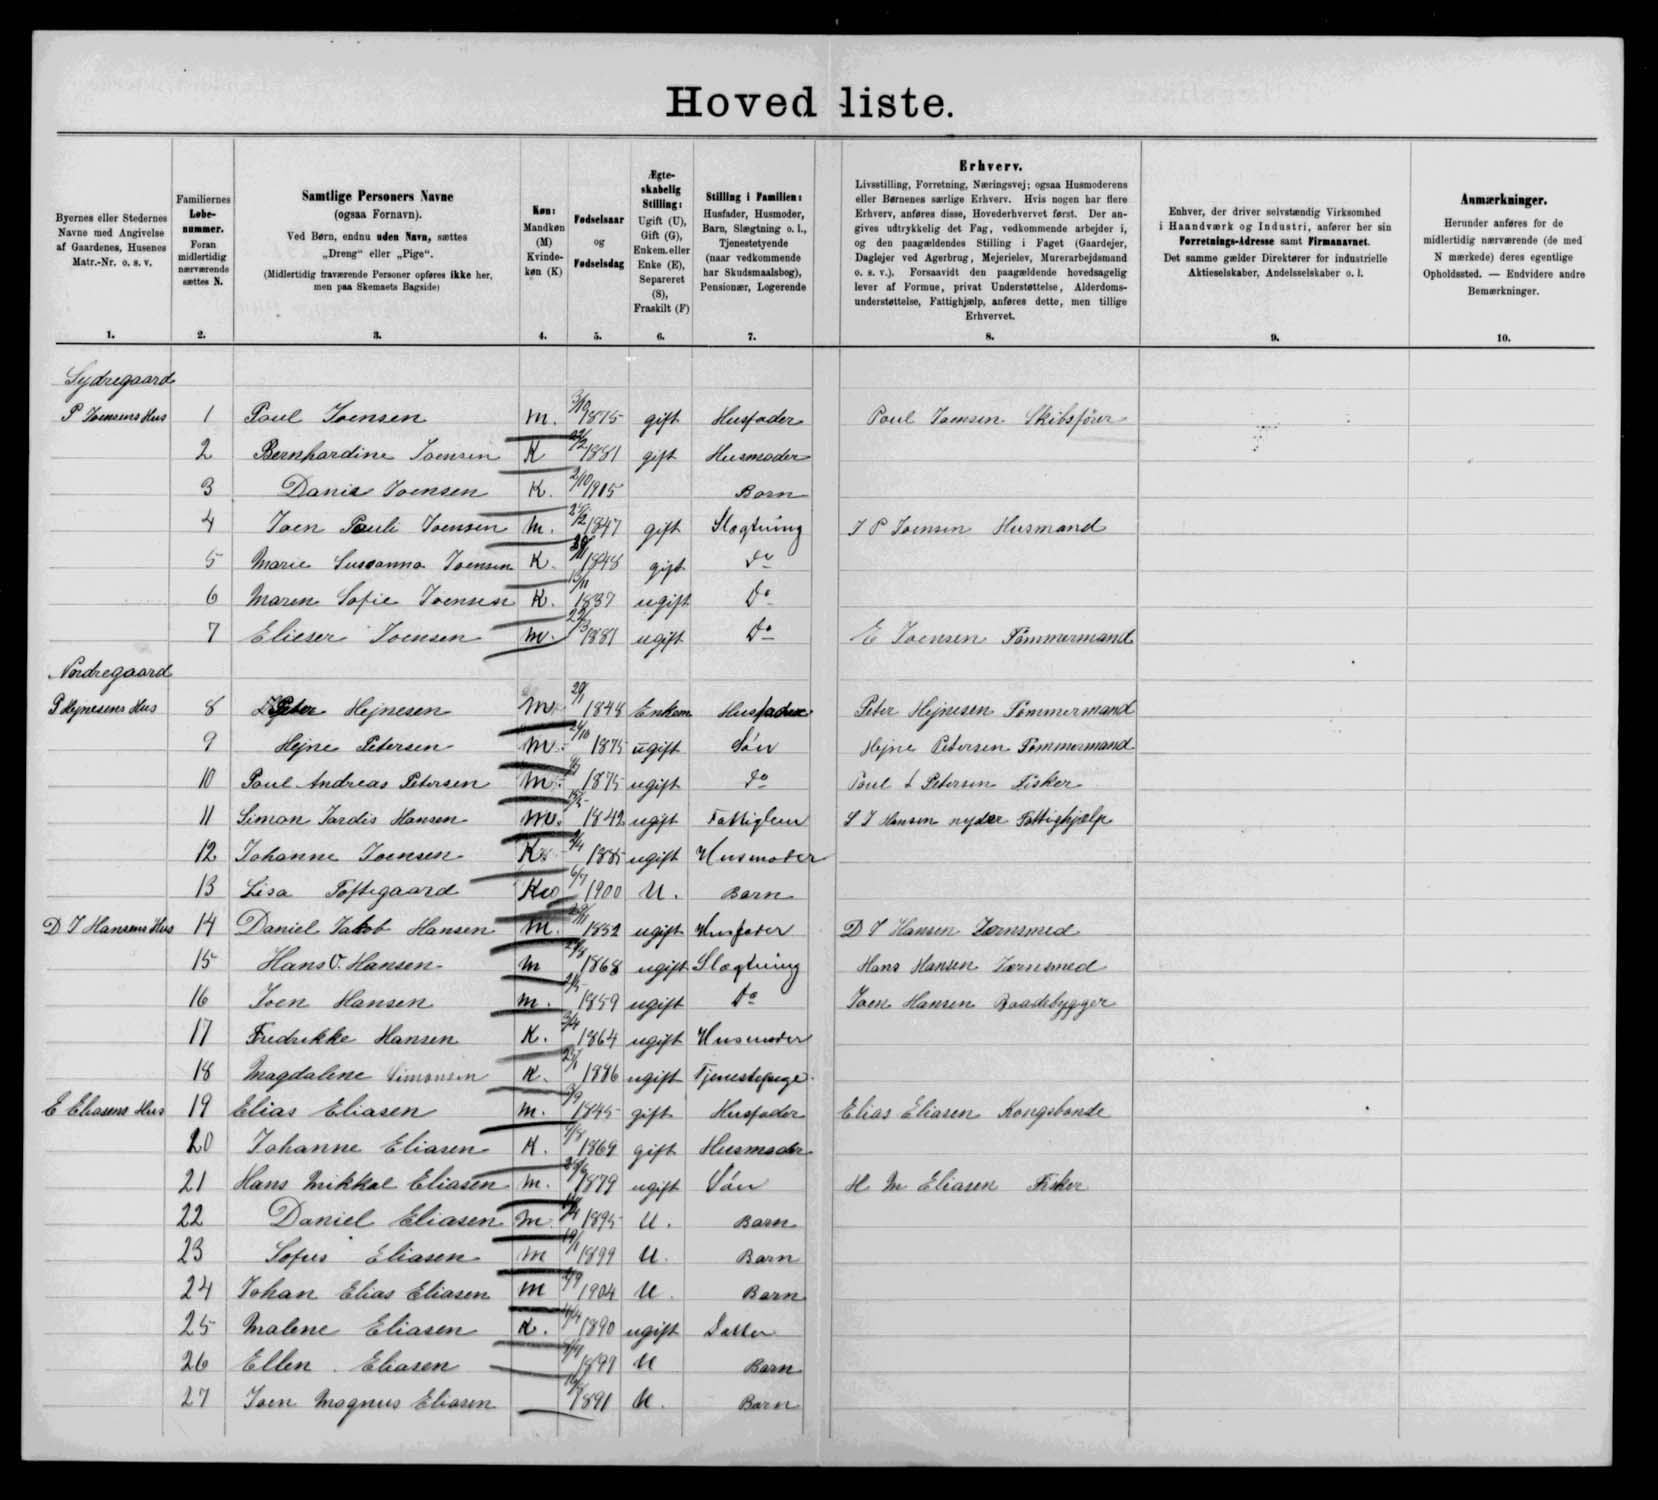 Hovedliste.
Byernes eller Stedernes Navne med Angivelse af Gaardenes, Husenes Matr.-Nr. o. s. v.
Familiernes Løbenummer. Foran midlertidig nærværende sættes N.
Samtlige Personers Navne (ogsaa Fornavn). Ved Børn, endnu uden Navn, sættes „Dreng“ eller „Pige“. (Midlertidig fraværende Personer opføres ikke her, men paa Skemaets Bagside)
Køn: Mandkøn (M) Kvindekøn (K)
Fødselsaar og Fødselsdag
Ægteskabelig Stilling: Ugift (U), Gift (G), Enkem. eller Enke (E), Separeret (S), Fraskilt (F)
Stilling i Familien: Husfader, Husmoder, Barn, Slægtning o. l., Tjenestetyende (naar vedkommende har Skudsmaalsbog), Pensionær, Logerende
Erhverv. Livsstilling, Forretning, Næringsvej; ogsaa Husmoderens eller Børnenes særlige Erhverv. Hvis nogen har flere Erhverv, anføres disse, Hovederhvervet først. Der angives udtrykkelig det Fag, vedkommende arbejder i, og den paagældendes Stilling i Faget (Gaardejer, Daglejer ved Agerbrug, Mejerielev, Murerarbejdsmand o. s. v.). Forsaavidt den paagældende hovedsagelig lever af Formue, privat Understøttelse, Alderdomsunderstøttelse, Fattighjælp, anføres dette, men tillige Erhvervet.
Enhver, der driver selvstændig Virksomhed i Haandværk og Industri, anfører her sin Forretnings-Adresse samt Firmanavnet. Det samme gælder Direktører for industrielle Aktieselskaber, Andelsselskaber o. l.
Anmærkninger. Herunder anføres for de midlertidig nærværende (de med N mærkede) deres egentlige Opholdssted. — Endvidere andre Bemærkninger.
1. 2. 3. 4. 5. 6. 7. 8. 9. 10.
Sydregaard
P Joensens Hus 1 Poul Joensen M. 3/10 1875 gift Husfader Poul Joensen Skibsfører
2 Bernhardine Joensen K 1881 gift Husmoder
3 Danis Joensen K. 2/10 1905 Barn
4 Joen Pauli Joensen M. 1847 gift Slægtning J P Joensen Husmand
5 Marie Susanna Joensen K. 1848 gift Do
6 Maren Sofie Joensen K. 13/11 1837 ugift Do
7 Elieser Joensen M. 22/3 1881 ugift Do E Joensen Tømmermand
Nordregaard
P Hejnesens Hus 8 Peter Hejnesen M. 29/1 1848 Enkem Husfader Peter Hejnesen Tømmermand
9 Hejne Petersen M. 24/10 1875 ugift Søn Hejne Petersen Tømmermand
10 Poul Andreas Petersen M. 1875 ugift do Poul A Petersen Fisker
11 Simon Jardis Hansen M. 1842 ugift Fattiglem S J Hansen nyder Fattighjælp
12 Johanne Joensen K 1885 ugift Husmoder
13 Lisa Toftegaard K 6/7 1900 U. Barn
D J Hansens Hus 14 Daniel Jakob Hansen M. 1852 ugift Husfader D J Hansen Jernsmed
15 Hans V. Hansen M 1868 ugift Slægtning Hans Hansen Jernsmed
16 Joen Hansen M. 1859 ugift Do Joen Hansen Baadebygger
17 Fredrikke Hansen K. 3/4 1864 ugift Husmoder
18 Magdalene Simonsen K. 1886 ugift Tjenestepige
E Eliasens Hus 19 Elias Eliasen M. 3/9 1845 gift Husfader Elias Eliasen Kongsbonde
20 Johanne Eliasen K. 1869 gift Husmoder
21 Hans Mikkal Eliasen M. 1879 ugift Søn H M Eliasen Fisker
22 Daniel Eliasen M. 1895 U. Barn
23 Sofus Eliasen M 1899 U. Barn
24 Johan Elias Eliasen M 1904 U. Barn
25 Malene Eliasen K. 1890 ugift Datter
26 Ellen Eliasen 1897 U Barn
27 Joen Magnus Eliasen 1891 U. Barn